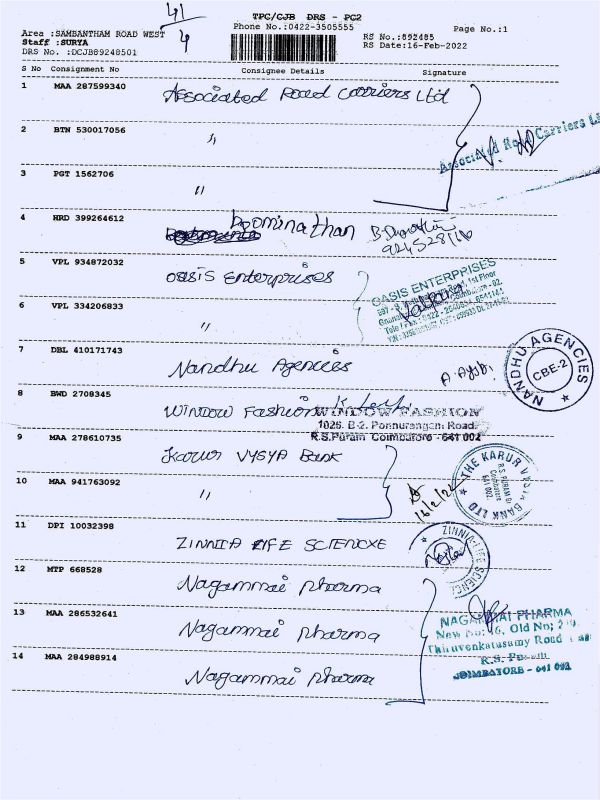 41/4
TPC/CJB DRS - PC2
Phone No.:0422-3505555
Page No.:1
Area :SAMBANTHAM ROAD WEST
Staff :SURYA
DRS No. :DCJB89248501
RS No.:892485
RS Date:16-Feb-2022
S No Consignment No Consignee Details Signature
1 MAA 287599340 Associated Road Carriers Ltd
2 BTN 530017056 "
Associated Road Carriers
3 PGT 1562706 "
4 HRD 399264612 boominathan
5 VPL 934872032 Oasis Enterprises
OASIS ENTERPRISES
6 VPL 334206833 "
7 DBL 410171743 Nandhu Agencies
NANDHU AGENCIES
CBE-2
8 BWD 2708345 Window Fashion
WINDOW FASHION
1026, B-2, Ponnurangam Road,
R.S.Puram Coimbatore - 641 002
9 MAA 278610735 Karur VYSYA Bank
10 MAA 941763092 "
16/2/22
THE KARUR VYSYA BANK LTD
R.S. PURAM
Coimbatore
641 002
11 DPI 10032398 ZINNIA LIFE SCIENCXE
ZINNIA LIFE SCIENC
12 MTP 668528 Nagammai pharma
13 MAA 286532641 Nagammai pharma
NAGAMMAI PHARMA
New No: 46, Old No;
Thiruvenkatasamy Road
R.S. Puram
COIMBATORE - 641 002
14 MAA 284988914 Nagammai pharma